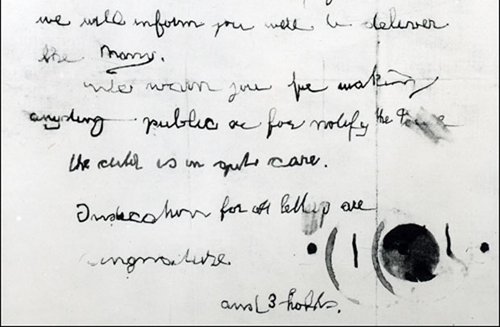 we will inform you were to deliver
the Mony.
We warn you for making
anyding public or for notify the Police
the child is in gut care.
Indication for all letters are
singnature
and 3 holds.